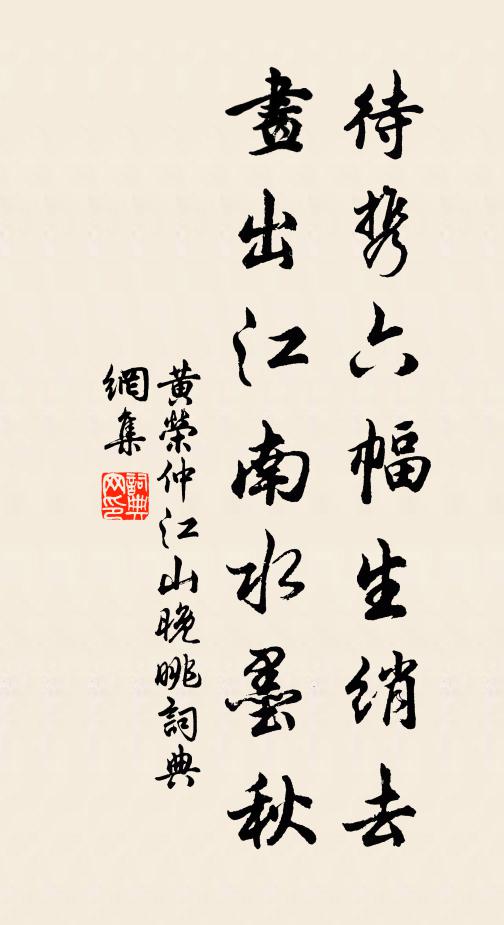 待携六幅生綃去
畫出江南水墨秋
黃榮仲江山晚眺詞典
網集
詞典
网印